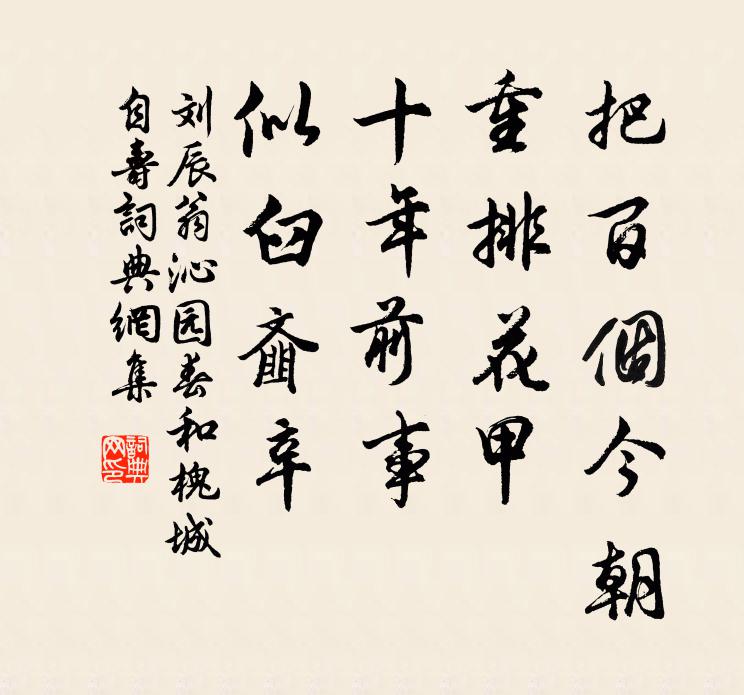 把百個今朝
重排花甲
十年前事
似臼齏辛
刘辰翁沁园春和槐城
自壽詞典網集
詞典网印